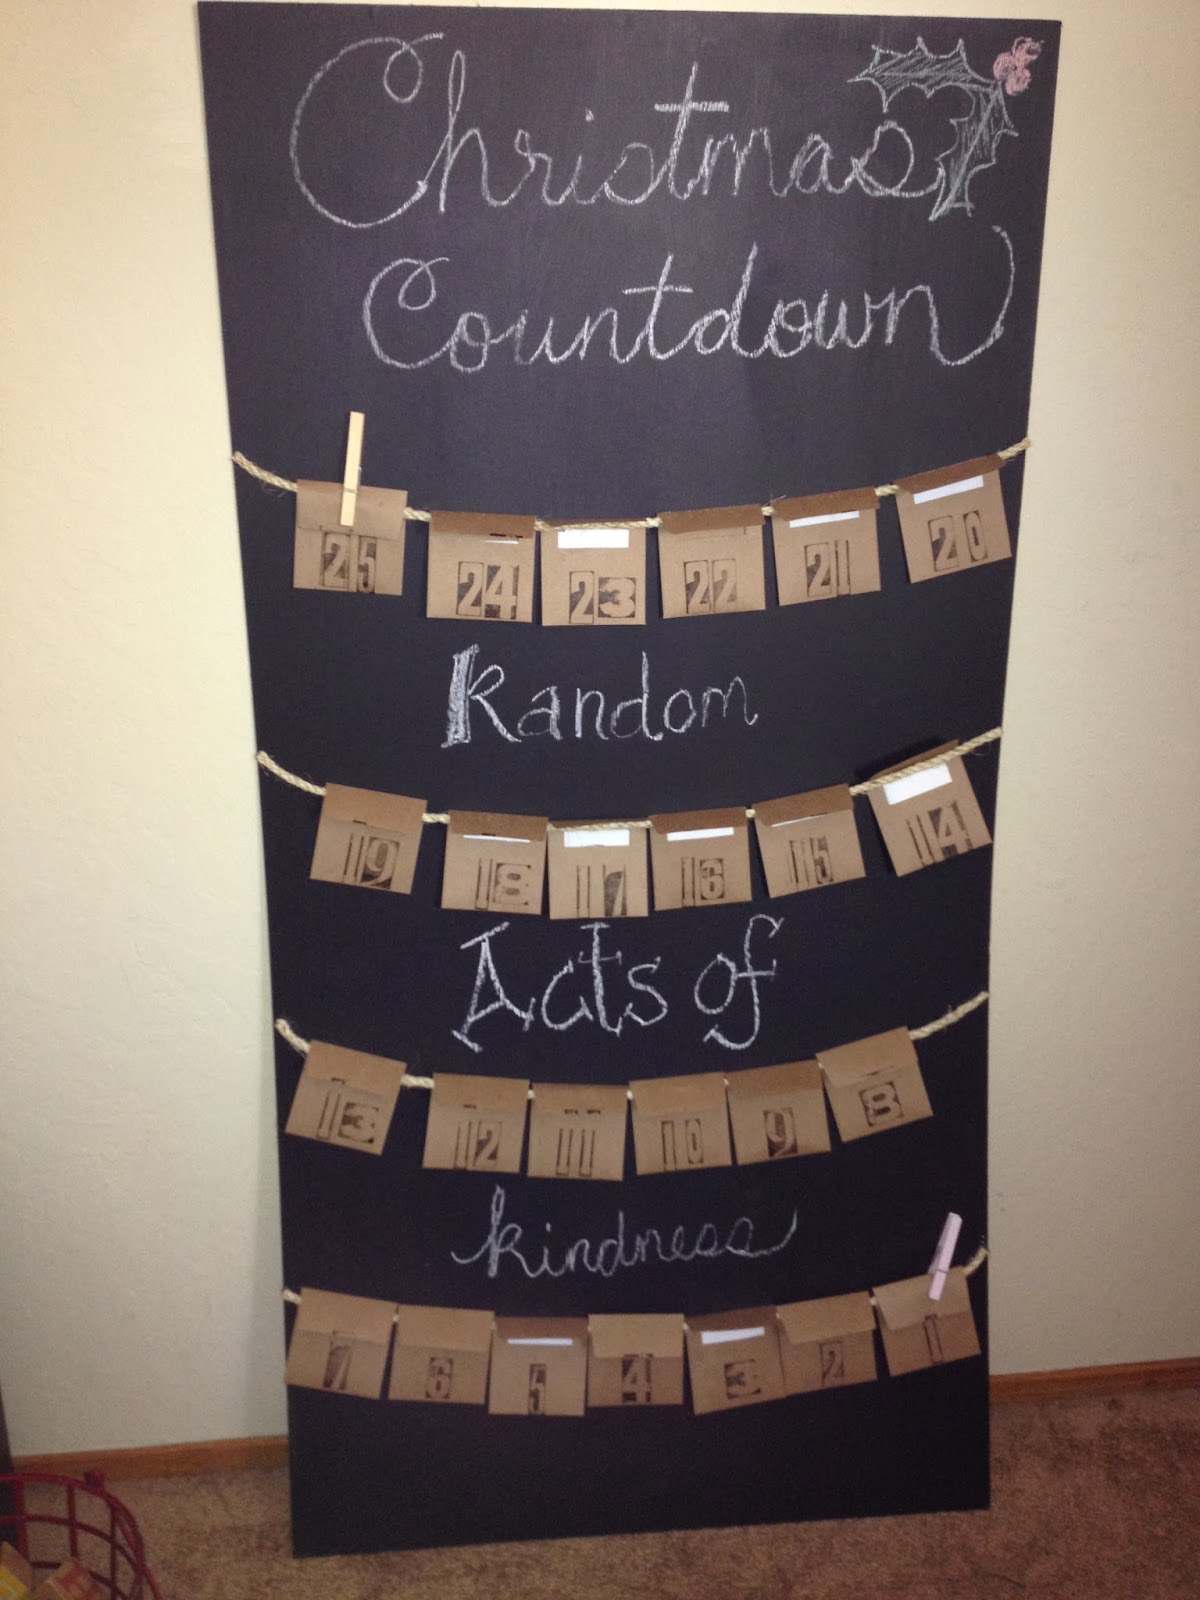 Christmas
Countdown
25 24 23 22 21 20
Random
19 18 17 16 15 14
Acts of
13 12 11 10 9 8
kindness
7 6 5 4 3 2 1